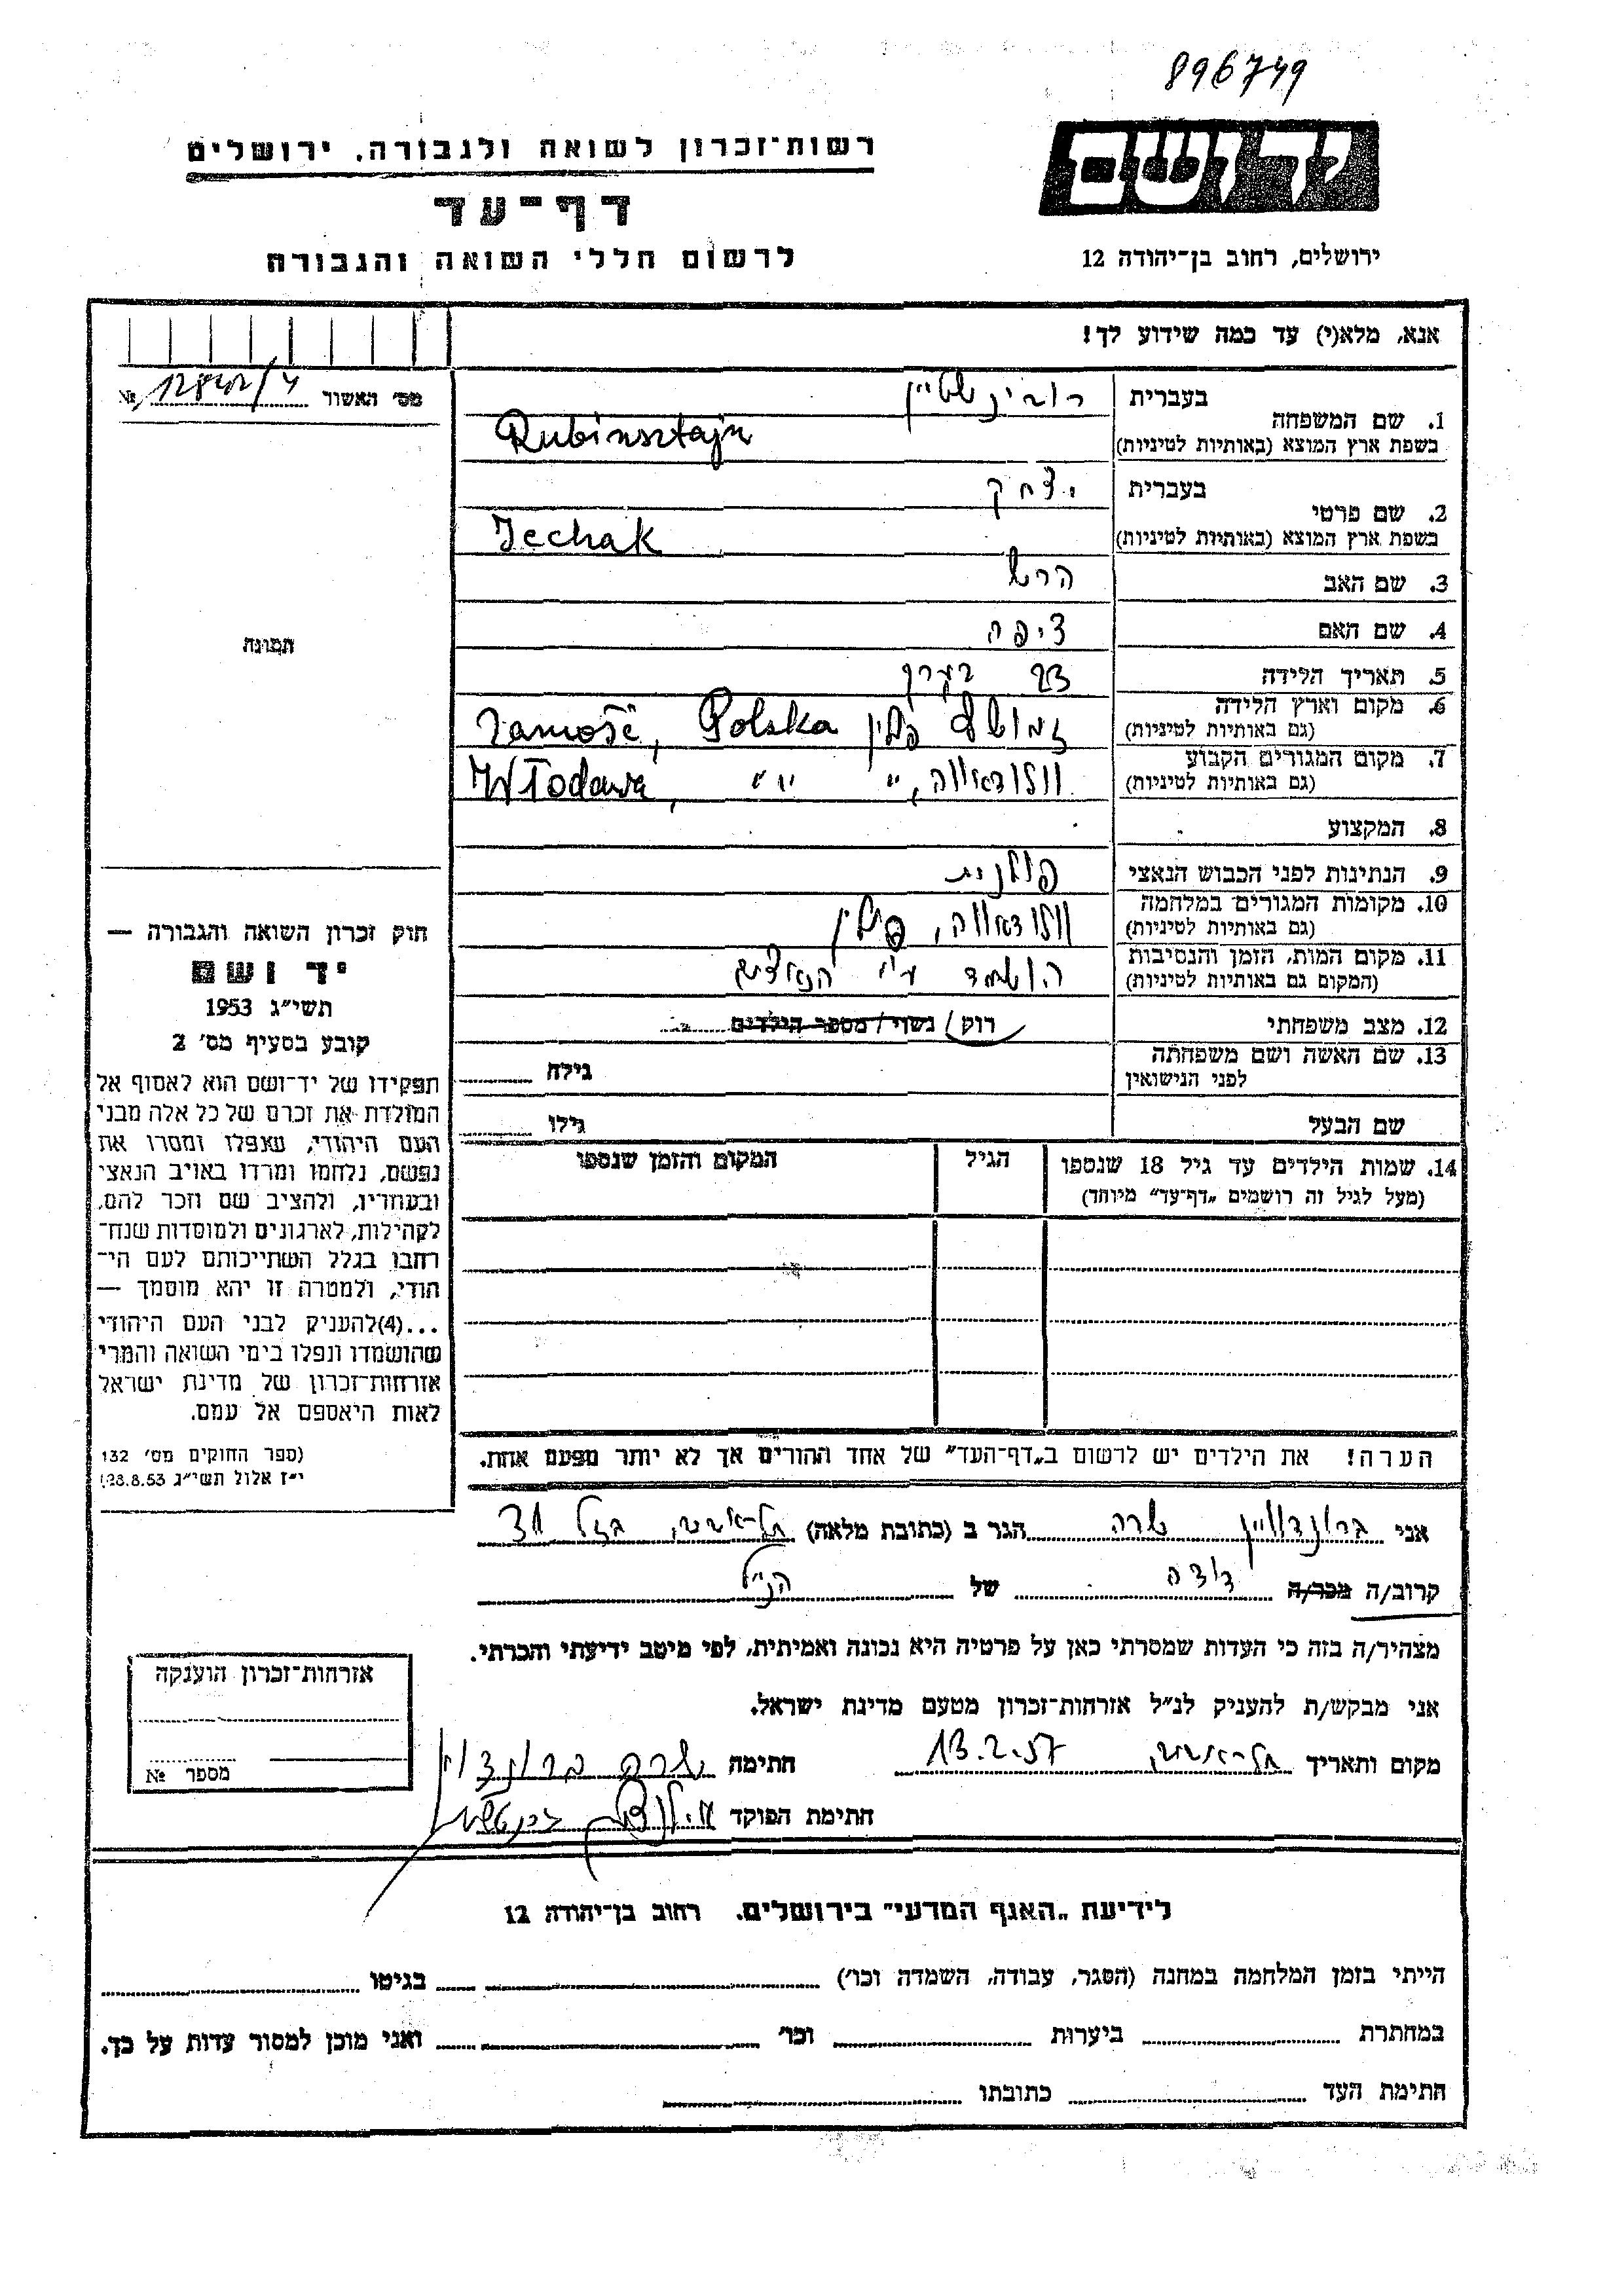 896749
רשות־זכרון לשואה ולגבורה, ירושלים
יד ושם
דף־עד
לרשום חללי השואה והגבורה
ירושלים, רחוב בן־יהודה 12
אנא, מלא(י) עד כמה שידוע לך!
מס׳ האשור 12842/4 №
בעברית רובינשטיין
1. שם המשפחה
בשפת ארץ המוצא (באותיות לטיניות) Rubinsztajn
בעברית יצחק
2. שם פרטי
בשפת ארץ המוצא (באותיות לטיניות) Jechak
3. שם האב הרש
4. שם האם ציפה
תמונה
5. תאריך הלידה 23 בערך
6. מקום וארץ הלידה
(גם באותיות לטיניות) זמושץ פולין Zamość, Polska
7. מקום המגורים הקבוע
(גם באותיות לטיניות) וולודאווה, " " " Włodawa,
8. המקצוע
9. הנתינות לפני הכבוש הנאצי פולנית
10. מקומות המגורים במלחמה
(גם באותיות לטיניות) וולודאווה, פולין
11. מקום המות, הזמן והנסיבות
(המקום גם באותיות לטיניות) הושמד ע"י הנאצים
12. מצב משפחתי רוק/ נשוי/ מספר הילדים
13. שם האשה ושם משפחתה
לפני הנישואין גילה
שם הבעל גילו
14. שמות הילדים עד גיל 18 שנספו הגיל המקום והזמן שנספו
(מעל לגיל זה רושמים „דף־עד״ מיוחד)
הערה! את הילדים יש לרשום ב„דף־העד״ של אחד ההורים אך לא יותר מפעם אחת.
חוק זכרון השואה והגבורה —
יד ושם
תשי״ג 1953
קובע בסעיף מס׳ 2
תפקידו של יד־ושם הוא לאסוף אל
המולדת את זכרם של כל אלה מבני
העם היהודי, שנפלו ומסרו את
נפשם, נלחמו ומרדו באויב הנאצי
ובעוזריו, ולהציב שם וזכר להם,
לקהילות, לארגונים ולמוסדות שנח־
רבו בגלל השתייכותם לעם הי־
הודי, ולמטרה זו יהא מוסמך —
...(4)להעניק לבני העם היהודי
שהושמדו ונפלו בימי השואה והמרי
אזרחות־זכרון של מדינת ישראל
לאות היאספם אל עמם.
(ספר החוקים מס׳ 132
י״ז אלול תשי״ג 28.8.53)
אני ברונדוויין שרה הגר ב (כתובת מלאה) תל־אביב, 31
קרוב/ה מכר/ה דודה של הנ"ל
מצהיר/ה בזה כי העדות שמסרתי כאן על פרטיה היא נכונה ואמיתית, לפי מיטב ידיעתי והכרתי.
אני מבקש/ת להעניק לנ״ל אזרחות־זכרון מטעם מדינת ישראל.
מקום ותאריך תל־אביב, 13.2.57 חתימה שרה
חתימת הפוקד
אזרחות־זכרון הוענקה
מספר №
לידיעת „האגף המדעי״ בירושלים. רחוב בן־יהודה 12
הייתי בזמן המלחמה במחנה (הסגר, עבודה, השמדה וכו׳) בגיטו
במחתרת ביערות וכו׳ ואני מוכן למסור עדות על כך.
חתימת העד כתובתו